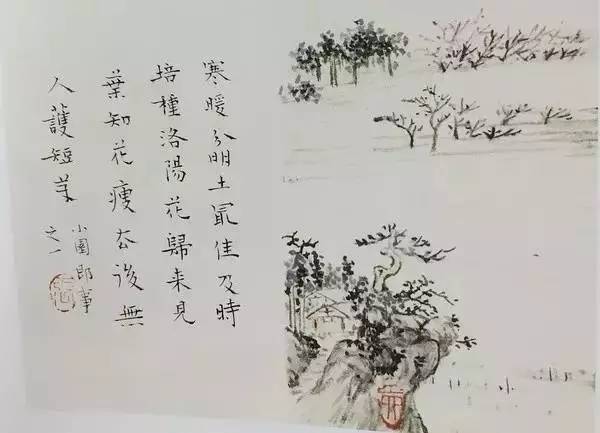 寒暖分明土最佳及時
培種洛陽花歸来見
葉知花瘦去後無
人護短芽
小園即事
之一